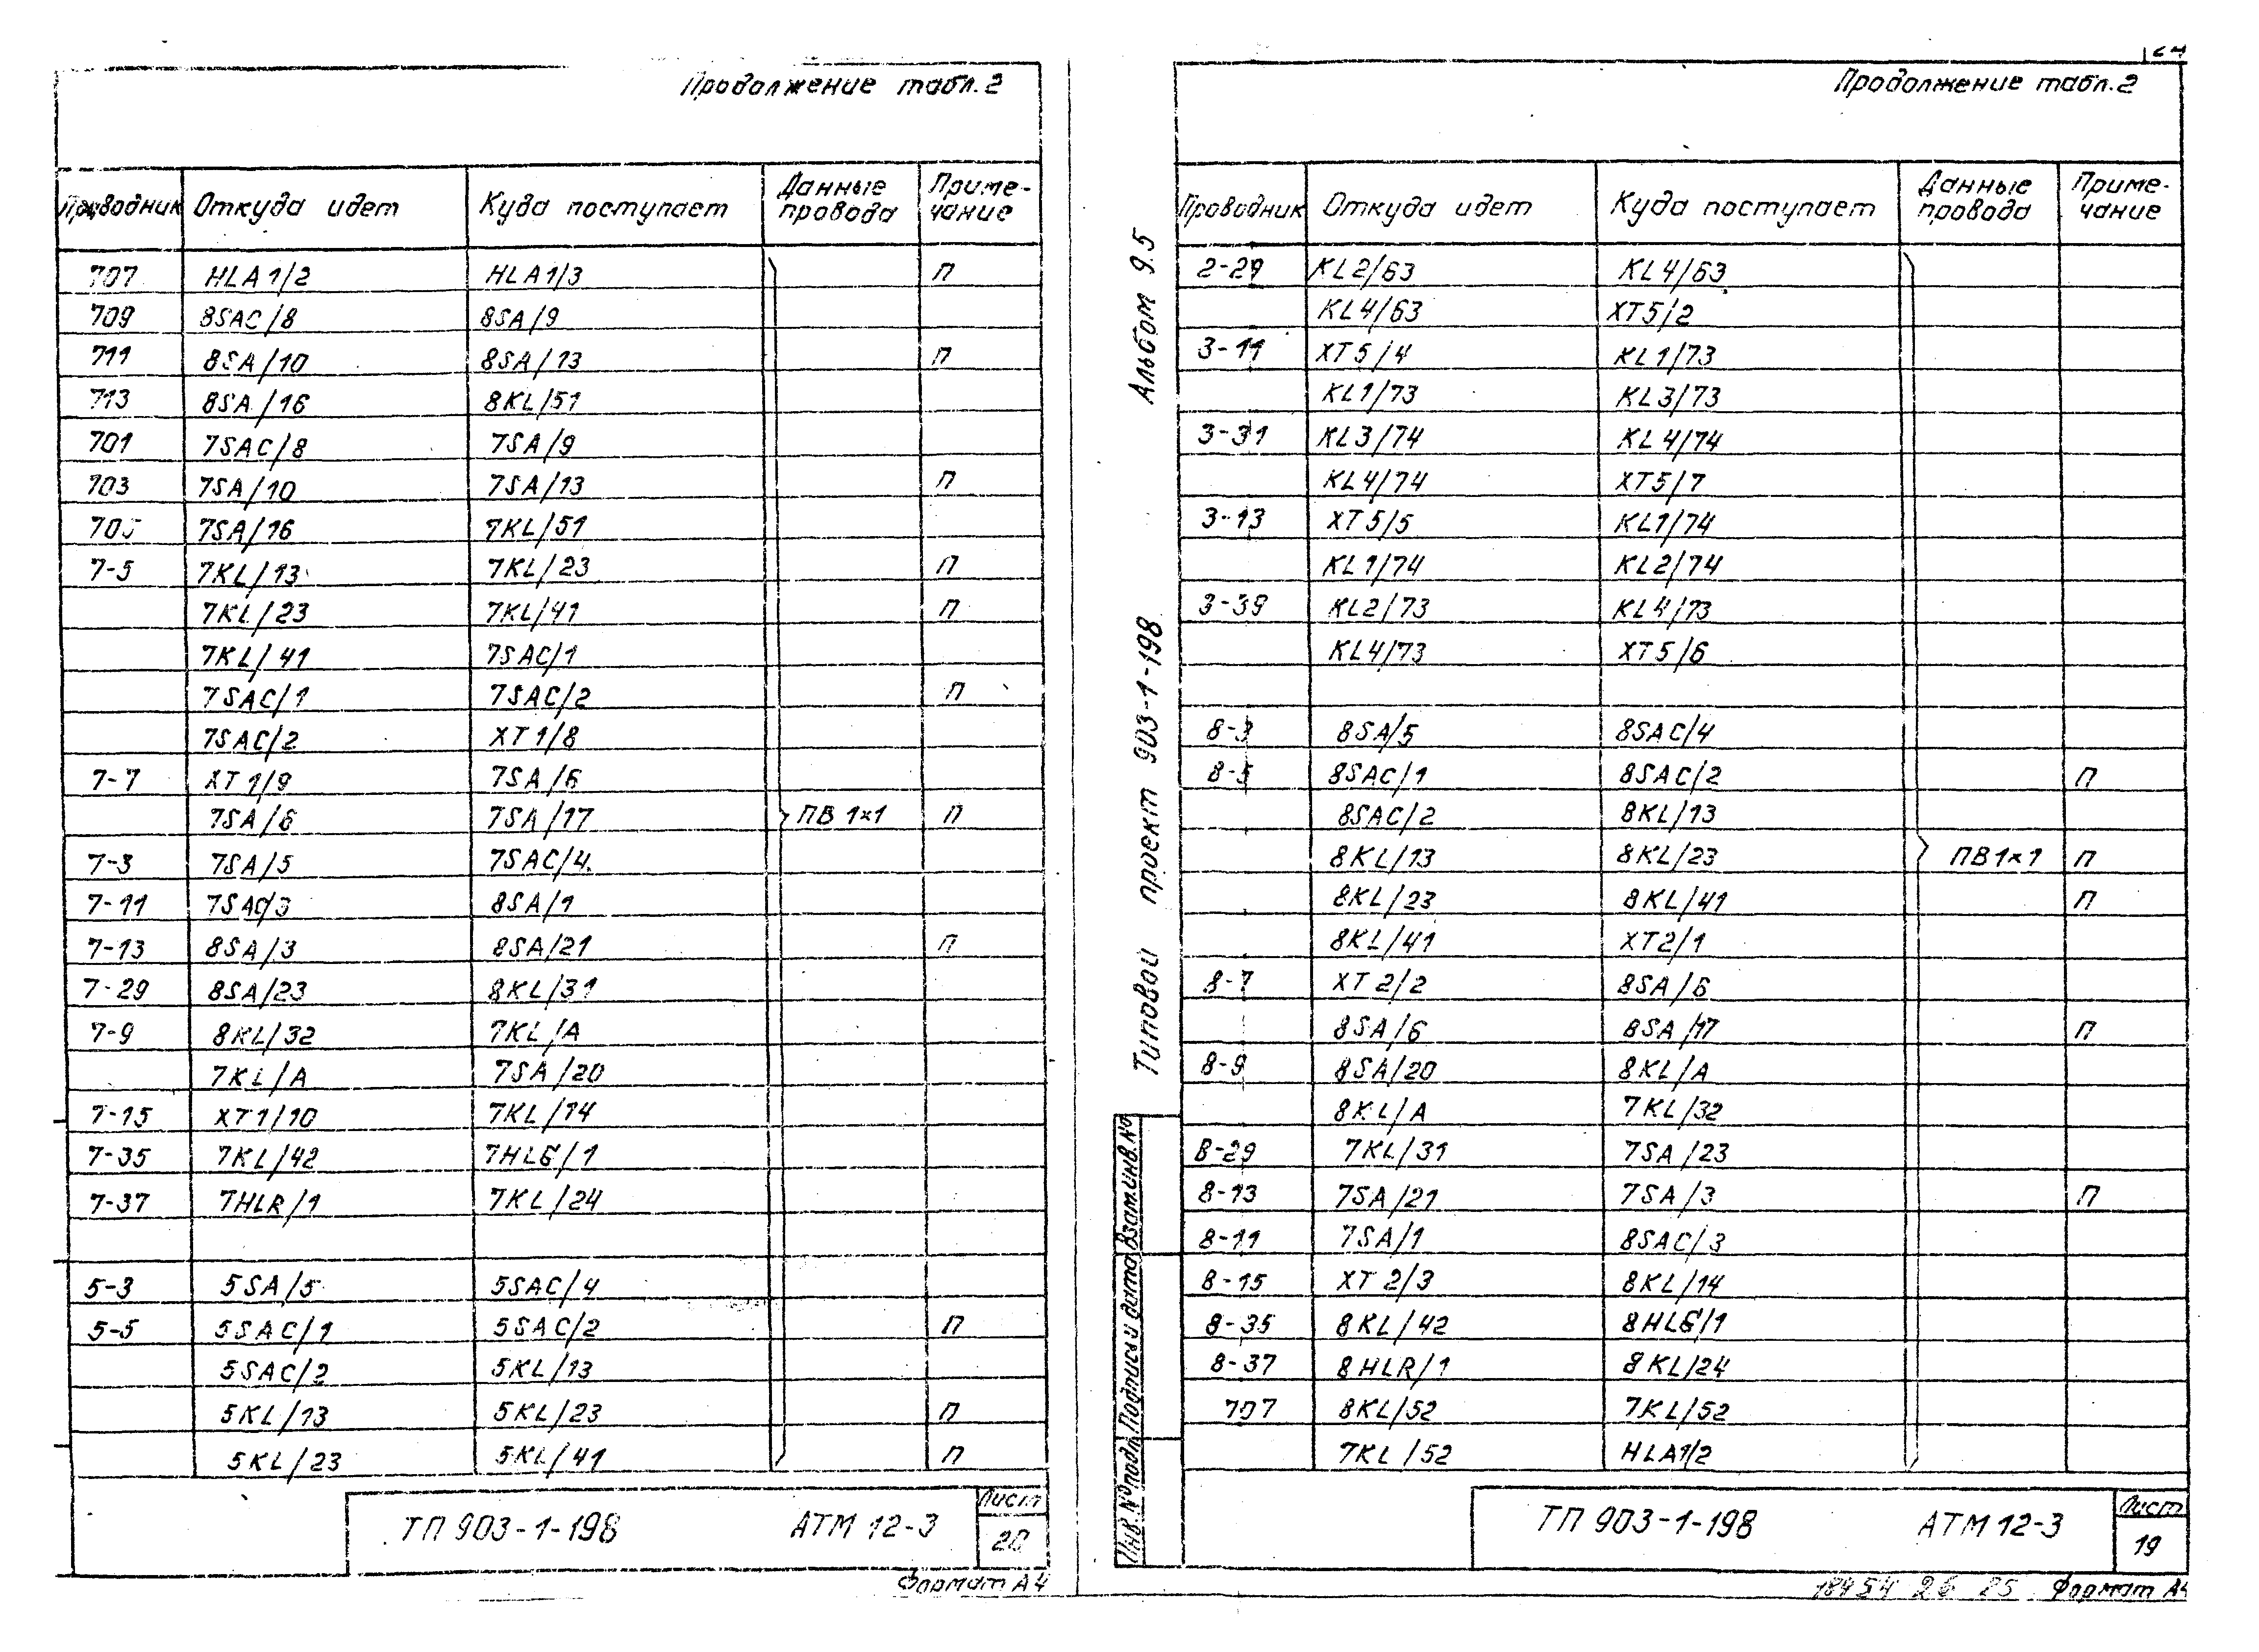 Продолжение табл.2
Проводник Откуда идет Куда поступает Данные провода Примечание
707 HLA1/2 HLA1/3 П
709 8SAC/8 8SA/9
711 8SA/10 8SA/13 П
713 8SA/16 8KL/51
701 7SAC/8 7SA/9
703 7SA/10 7SA/13 П
705 7SA/16 7KL/51
7-5 7KL/13 7KL/23 П
7KL/23 7KL/41 П
7KL/41 7SAC/1
7SAC/1 7SAC/2 П
7SAC/2 XT1/8
7-7 XT1/9 7SA/6
7SA/6 7SA/17 ПВ 1×1 П
7-3 7SA/5 7SAC/4
7-11 7SAC/3 8SA/1
7-13 8SA/3 8SA/21 П
7-29 8SA/23 8KL/31
7-9 8KL/32 7KL/A
7KL/A 7SA/20
7-15 XT1/10 7KL/14
7-35 7KL/42 7HLG/1
7-37 7HLR/1 7KL/24
5-3 5SA/5 5SAC/4
5-5 5SAC/1 5SAC/2 П
5SAC/2 5KL/13
5KL/13 5KL/23 П
5KL/23 5KL/41 П
ТП 903-1-198 АТМ 12-3 Лист 20
Формат А4
24
Продолжение табл.2
Проводник Откуда идет Куда поступает Данные провода Примечание
2-29 KL2/63 KL4/63
KL4/63 XT5/2
3-11 XT5/4 KL1/73
KL1/73 KL3/73
3-31 KL3/74 KL4/74
KL4/74 XT5/7
3-13 XT5/5 KL1/74
KL1/74 KL2/74
3-39 KL2/73 KL4/73
KL4/73 XT5/6
8-3 8SA/5 8SAC/4
8-5 8SAC/1 8SAC/2 П
8SAC/2 8KL/13
8KL/13 8KL/23 ПВ1×1 П
8KL/23 8KL/41 П
8KL/41 XT2/1
8-7 XT2/2 8SA/6
8SA/6 8SA/17 П
8-9 8SA/20 8KL/A
8KL/A 7KL/32
8-29 7KL/31 7SA/23
8-13 7SA/21 7SA/3 П
8-11 7SA/1 8SAC/3
8-15 XT2/3 8KL/14
8-35 8KL/42 8HLG/1
8-37 8HLR/1 8KL/24
707 8KL/52 7KL/52
7KL/52 HLA1/2
ТП 903-1-198 АТМ 12-3 Лист 19
18454 26 25 Формат А4
Типовой проект 903-1-198 Альбом 9.5
Инв.№подл. Подпись и дата Взам.инв.№